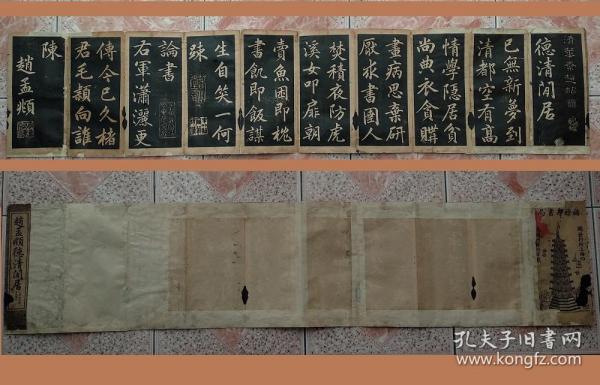 德清閒居
已無新夢到
清都空有高
情學隱居貧
尚典衣貪購
畫病思棄研
厭求書園人
焚積夜防虎
溪女叩扉朝
賣魚困即枕
書飢即飯謀
生自笑一何
疎
論書
右軍瀟灑更
清真
傳今已久楮
君毛穎向誰
陳
趙孟頫
趙孟頫德清閒居
孔夫子旧书网
www.kongfz.com